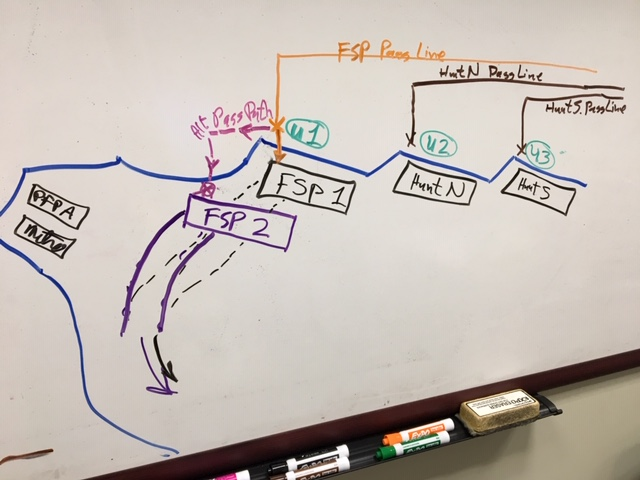 FSP Pass Line
Hunt N PassLine
Hunt S. PassLine
Alt Pass Path
U1
U2
U3
FSP 1
Hunt N
Hunt S
PFPA
FSP 2
EXPO
ERASER